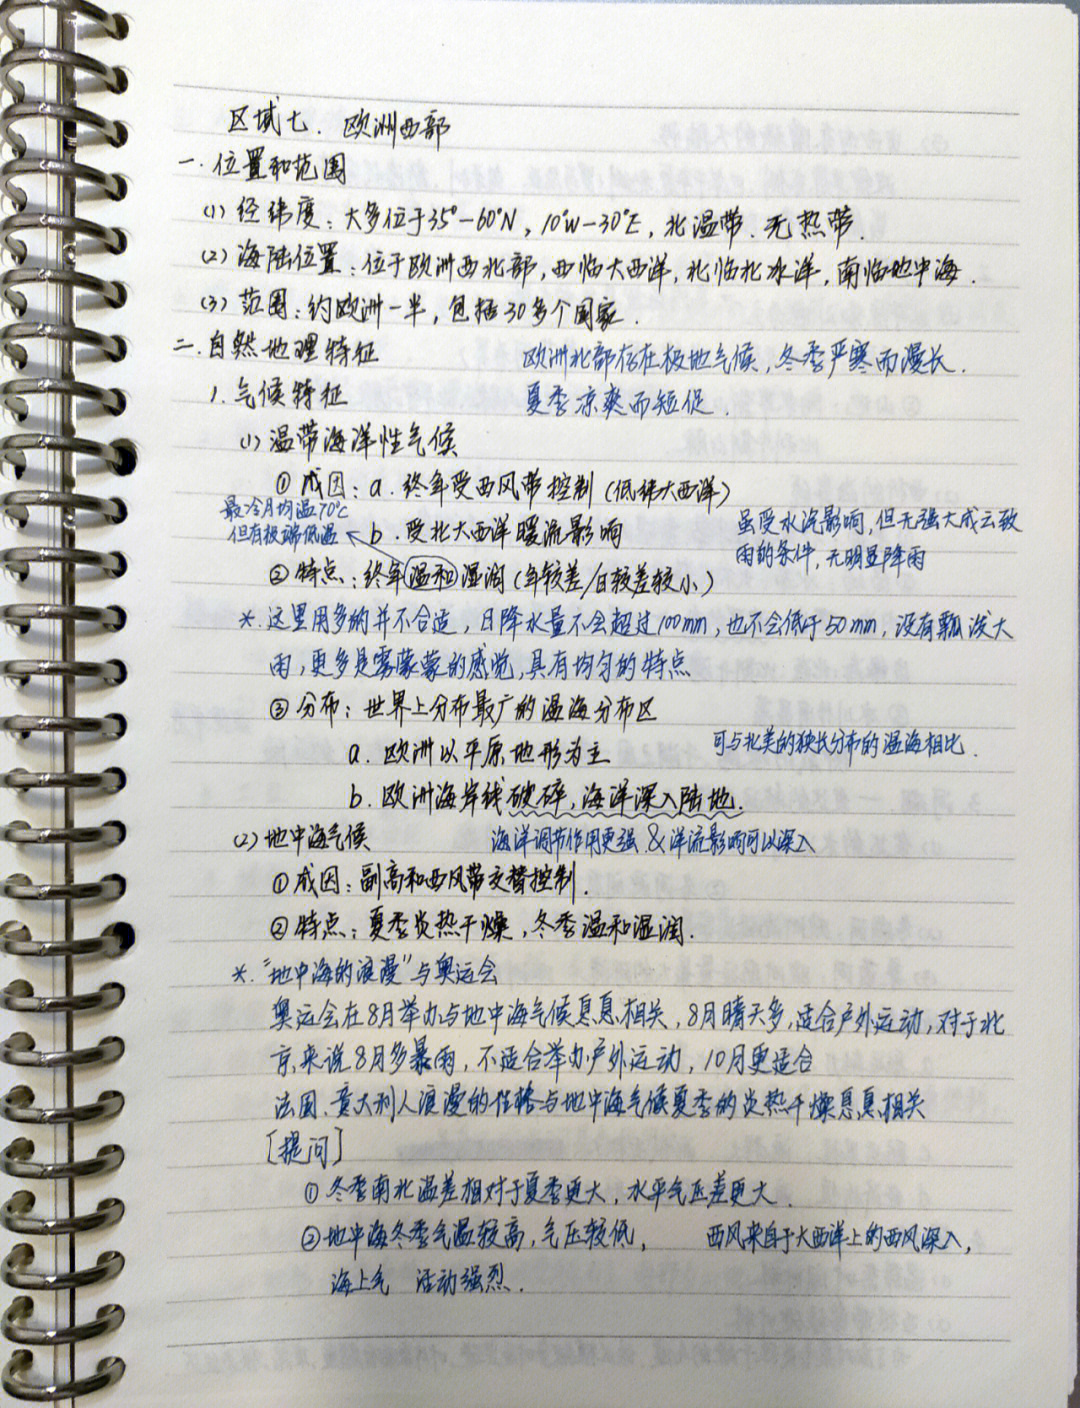 区域七. 欧洲西部
一. 位置和范围
(1) 经纬度: 大多位于35°-60°N, 10°W-30°E, 北温带. 无热带.
(2) 海陆位置: 位于欧洲西北部, 西临大西洋, 北临北冰洋, 南临地中海.
(3) 范围: 约欧洲一半, 包括30多个国家.
二. 自然地理特征
欧洲北部存在极地气候, 冬季严寒而漫长.
夏季凉爽而短促.
1. 气候特征
(1) 温带海洋性气候
① 成因: a. 终年受西风带控制 (低纬大西洋)
最冷月均温>0℃
但有极端低温
b. 受北大西洋暖流影响
虽受水汽影响, 但无强大成云致
雨的条件, 无明显降雨
② 特点: 终年温和湿润 (年较差/日较差较小)
*. 这里用多的并不合适, 日降水量不会超过100mm, 也不会低于50mm, 没有瓢泼大
雨, 更多是雾蒙蒙的感觉, 具有均匀的特点
③ 分布: 世界上分布最广的温海分布区
a. 欧洲以平原地形为主
可与北美的狭长分布的温海相比.
b. 欧洲海岸线破碎, 海洋深入陆地.
(2) 地中海气候
海洋调节作用更强 & 洋流影响可以深入
① 成因: 副高和西风带交替控制.
② 特点: 夏季炎热干燥, 冬季温和湿润.
*. "地中海的浪漫"与奥运会
奥运会在8月举办与地中海气候息息相关, 8月晴天多, 适合户外运动, 对于北
京来说8月多暴雨, 不适合举办户外运动, 10月更适合
法国、意大利人浪漫的性格与地中海气候夏季的炎热干燥息息相关
[提问]
① 冬季南北温差相对于夏季更大, 水平气压差更大.
② 地中海冬季气温较高, 气压较低,
西风来自于大西洋上的西风深入,
海上气 活动强烈.